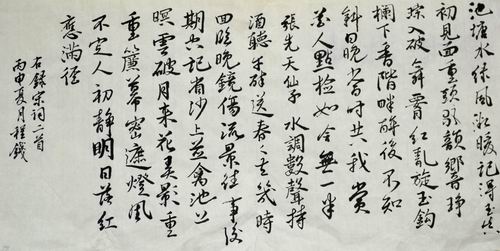 池塘水绿風微暖记得玉真
初見面重頭歌韻響琤
琮入破舞腰红亂旋玉鈎
欄下香階畔醉後不知
斜日晚當时共我賞
花人點检如今無一半
張先天仙子 水調數聲持
酒聽午醉送春春去幾時
回临晚鏡傷流景往事後
期共记省沙上並禽池上
暝雲破月来花弄影重
重簾幕密遮燈風
不定人初静明日落红
應滿徑
右錄宋詞二首
丙申夏月程